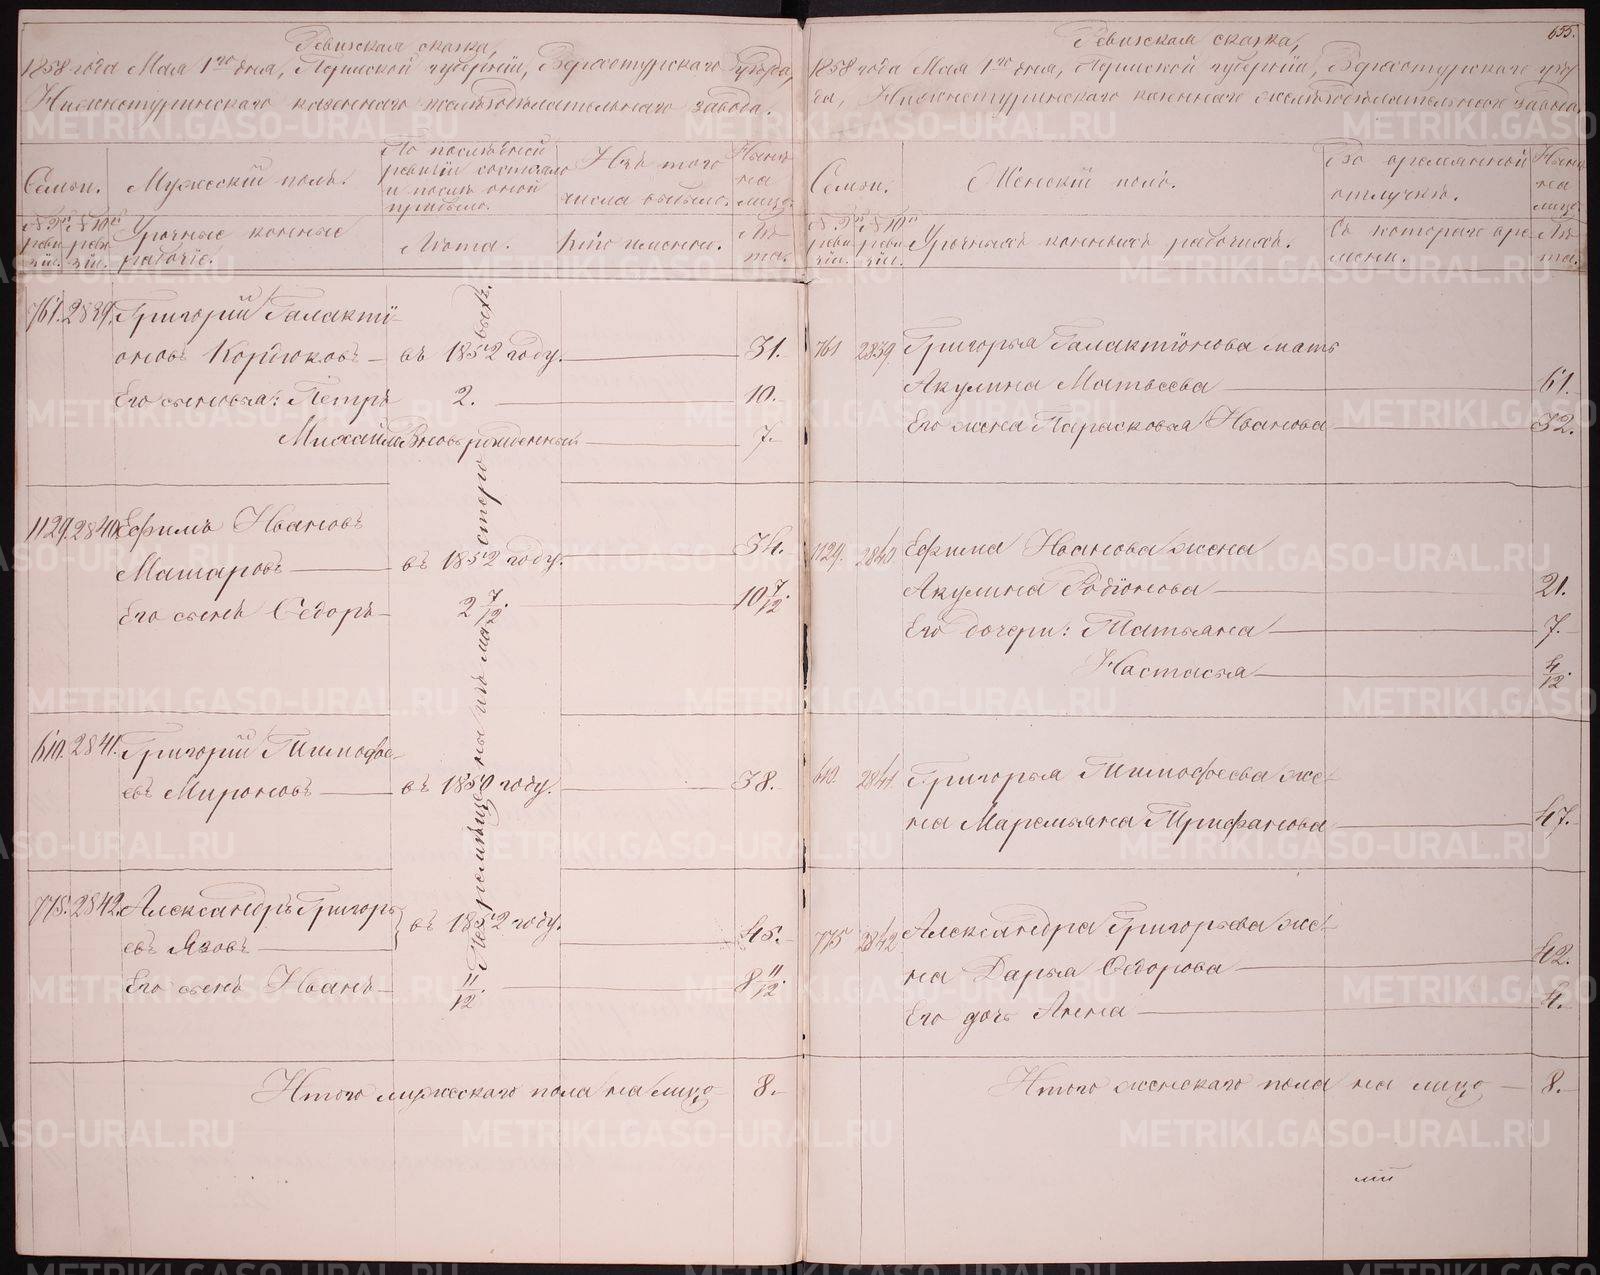 655.
Ревизская сказка,
1858 года Мая 1го дня, Пермской губернiи, Верхотурскаго уѣзда,
Нижнетуринскаго казеннаго желѣзодѣлательнаго завода.
Семьи.
Мужескiй полъ.
По послѣдней
ревизiи состояло
и послѣ оной
прибыло.
Изъ того
числа выбыло.
Нынѣ
на
лицо.
№ 9й
реви-
зiи.
№ 10й
реви-
зiи.
Урочные конные
рабочiе.
Лѣта.
Кто именно.
Лѣ-
та.
761. 2839. Григорiй Галактi-
оновъ Кордюковъ — въ 1852 году. 31.
Его сыновья: Петръ 2. 10.
Михаилъ Вновь рожденный 7.
1129. 2840. Ефимъ Ивановъ
Матаровъ въ 1852 году. 34.
Его сынъ Ѳедоръ 2 7/12. 10 7/12.
610. 2841. Григорiй Тимофе-
евъ Мироновъ въ 1850 году. 38.
775. 2842. Александръ Григорь
евъ Язовъ въ 1852 году. 45.
Его сынъ Иванъ 11/12. 8 11/12.
Итого мужескаго пола на лицо 8.
Ревизская сказка,
1858 года Мая 1го дня, Пермской губернiи, Верхотурскаго уѣз
да, Нижнетуринскаго казеннаго желѣзодѣлательнаго завода.
Семьи.
Женскiй полъ.
Во временной
отлучкѣ.
Нынѣ
на
лицо.
№ 9й
реви-
зiи.
№ 10й
реви-
зiи.
Урочныхъ конныхъ рабочихъ.
Съ котораго вре
мени.
Лѣ-
та.
761 2839. Григорья Галактiонова мать
Акулина Матвеева 61.
Его жена Парасковья Иванова 32.
1129. 2840 Ефима Иванова жена
Акулина Родiонова 21.
Его дочери: Татьяна 7.
Настасья 4/12.
610. 2841 Григорья Тимофеева же-
на Маремьяна Трифанова 47.
775 2842 Александра Григорьева же-
на Дарья Ѳедорова 42.
Его дочь Анна 4.
Итого женскаго пола на лицо 8.
METRIKI.GASO-URAL.RU